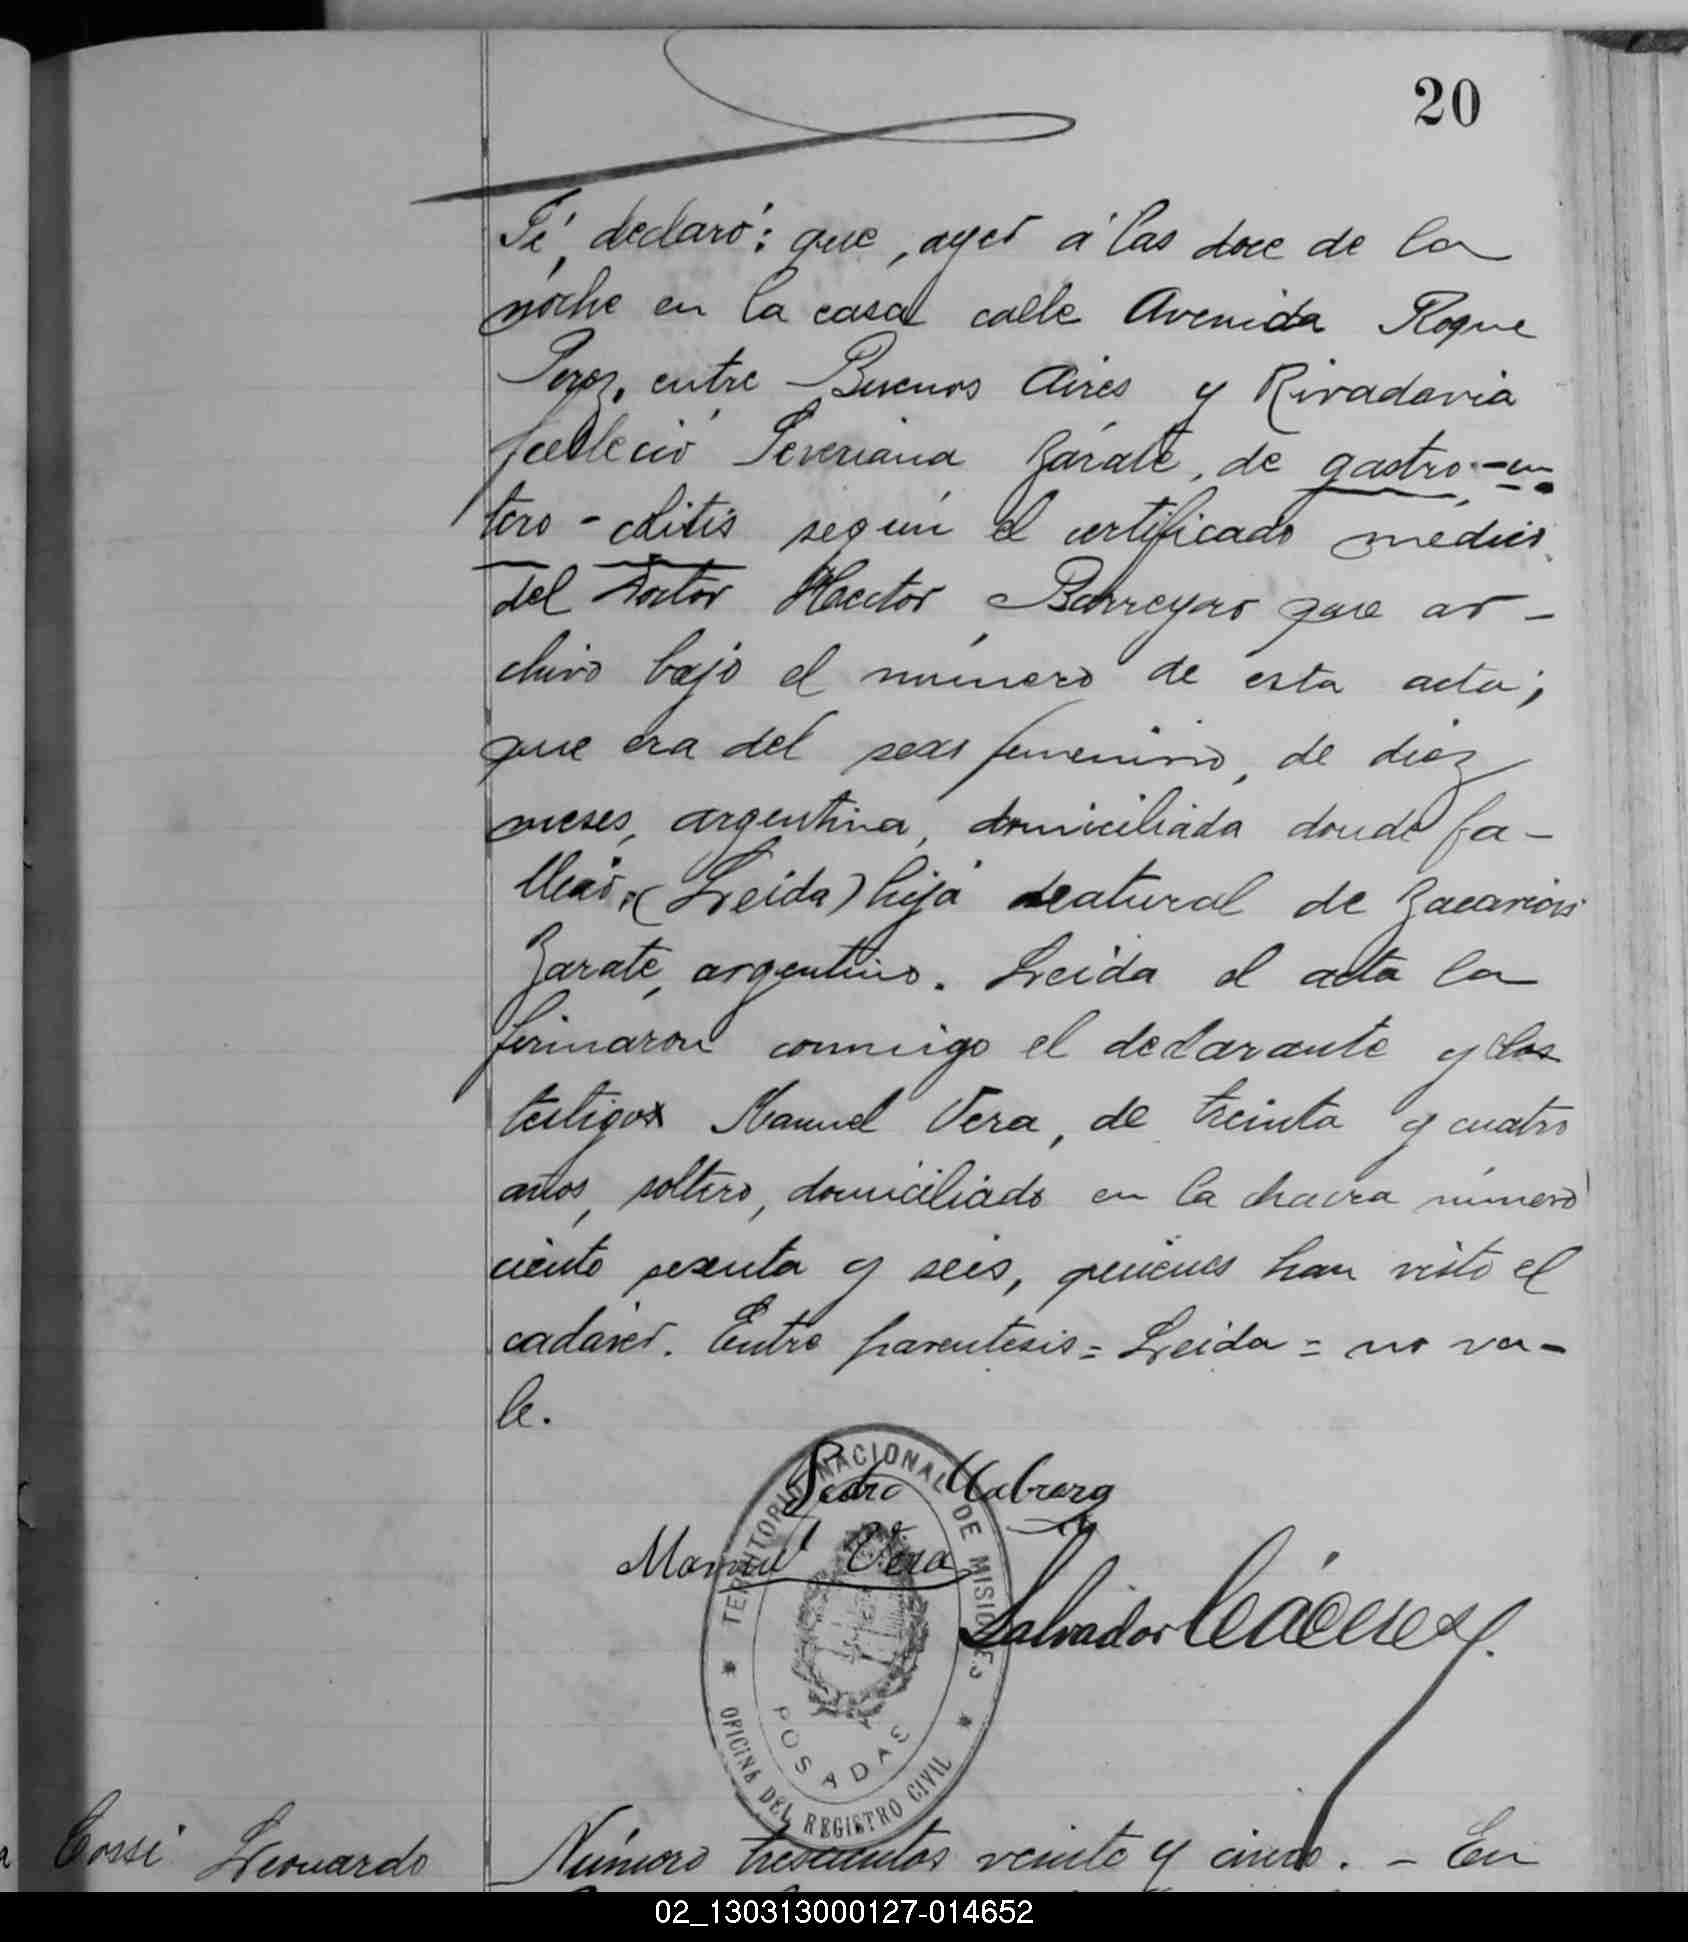 20
Pé, declaró: que, ayer á las doce de la
noche en la casa calle Avenida Roque
Perez, entre Buenos Aires y Rivadavia
falleció Severiana Zárate, de gastro-en
tero-colitis según el certificado medico
del Doctor Hector Barreyro que ar-
chivo bajo el número de esta acta;
que era del sexo femenino, de diez
meses, argentina, domiciliada donde fa-
lleció, (Leida) hija natural de Zacarias
Zarate, argentino. Leida el acta la
firmaron conmigo el declarante y los
testigos Manuel Vera, de treinta y cuatro
años, soltero, domiciliado en la chacra número
ciento sesenta y seis, quienes han visto el
cadáver. Entre parentesis = Leida = no va-
le.
Pedro
Manuel Vera
Salvador Cáceres
TERRITORIO NACIONAL DE MISIONES
POSADAS
OFICINA DEL REGISTRO CIVIL
Cossi Leonardo
Número trescientos veinte y cinco. - En
02_130313000127-014652